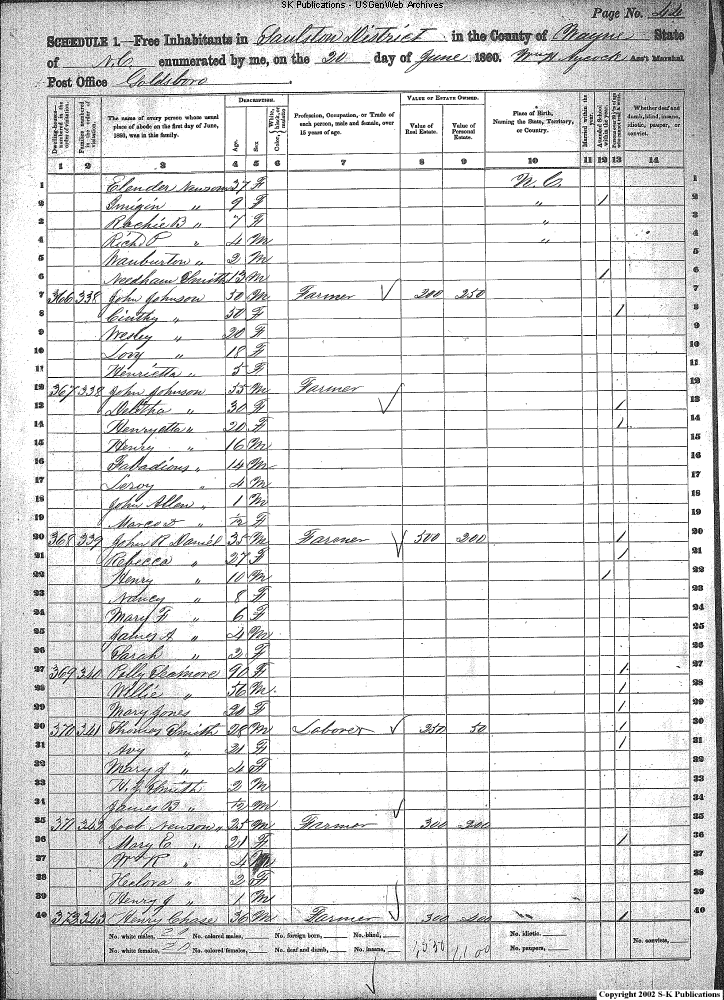 SK Publications - USGenWeb Archives
Page No. 44
SCHEDULE 1.—Free Inhabitants in Saulston District in the County of Wayne State
of N.C. enumerated by me, on the 20 day of June 1860. Wm H Aycock Ass't Marshal
Post Office Goldsboro
Dwelling-houses—numbered in the order of visitation. Families numbered in the order of visitation. The name of every person whose usual place of abode on the first day of June, 1860, was in this family. DESCRIPTION. Age. Sex. Color, White, black, or mulatto. Profession, Occupation, or Trade of each person, male and female, over 15 years of age. VALUE OF ESTATE OWNED. Value of Real Estate. Value of Personal Estate. Place of Birth, Naming the State, Territory, or Country. Married within the year. Attended School within the year. Whether deaf and dumb, blind, insane, idiotic, pauper, or convict.
1 2 3 4 5 6 7 8 9 10 11 12 13 14
1 Elender Newsom 37 F N.C. 1
2 9 F " / 2
3 " 7 F " 3
4 Richd P " 4 M " 4
5 " 2 M 5
6 Needham Smith 13 M / 6
7 366 338 John Johnson 50 M Farmer 200 250 7
8 Cinthy " 50 F / 8
9 Wesley " 20 F 9
10 Lovy " 18 F 10
11 Henrietta " 5 F 11
12 367 338 John Johnson 55 M Farmer 12
13 " 30 F / 13
14 Henryetta " 20 F / 14
15 Henry " 16 M 15
16 " 14 M 16
17 Leroy " 4 M 17
18 John Allen " 1 M 18
19 " ½ F 19
20 368 339 John R Daniel 35 M Farmer 500 200 / 20
21 Rebecca " 27 F / 21
22 Henry " 10 M / 22
23 Nancy " 8 F 23
24 Mary F " 6 F 24
25 James A " 4 M 25
26 Sarah " 2 F 26
27 369 340 Polly 90 F / 27
28 Willie " 56 M / 28
29 Mary Jones 20 F / 29
30 370 341 Thomas Smith 28 M Laborer 250 50 / 30
31 Avy " 21 F / 31
32 Mary J " 4 F 32
33 Smith 2 M 33
34 James B " ½ M 34
35 371 342 Newsom 25 M Farmer 300 200 35
36 Mary C " 21 F / 36
37 W R " 4 M 37
38 " 2 F 38
39 Henry J " 1 M 39
40 373 343 Henry Chase 36 M Farmer 300 400 / 40
No. white males, 20 No. colored males, No. foreign born, No. blind, No. idiotic,
No. white females, 20 No. colored females, No. deaf and dumb, No. insane, 1,550 1,100 No. paupers, No. convicts,
Copyright 2002 S-K Publications